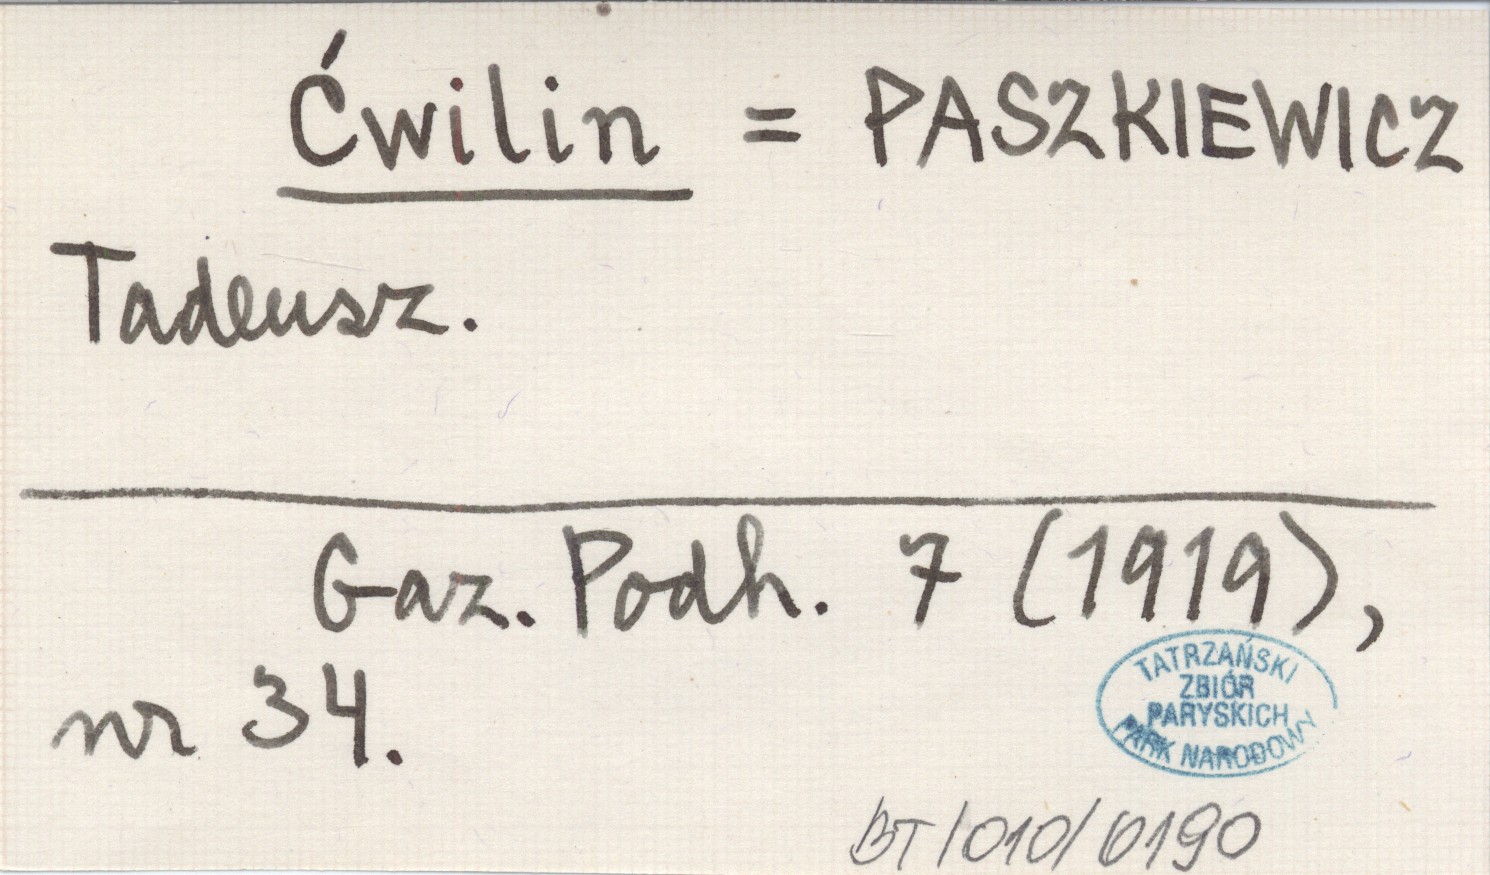 Ćwilin = PASZKIEWICZ
Tadeusz.
Gaz. Podh. 7 (1919),
nr 34.
TATRZAŃSKI
ZBIÓR
PARYSKICH
PARK NARODOWY
BT/010/0190